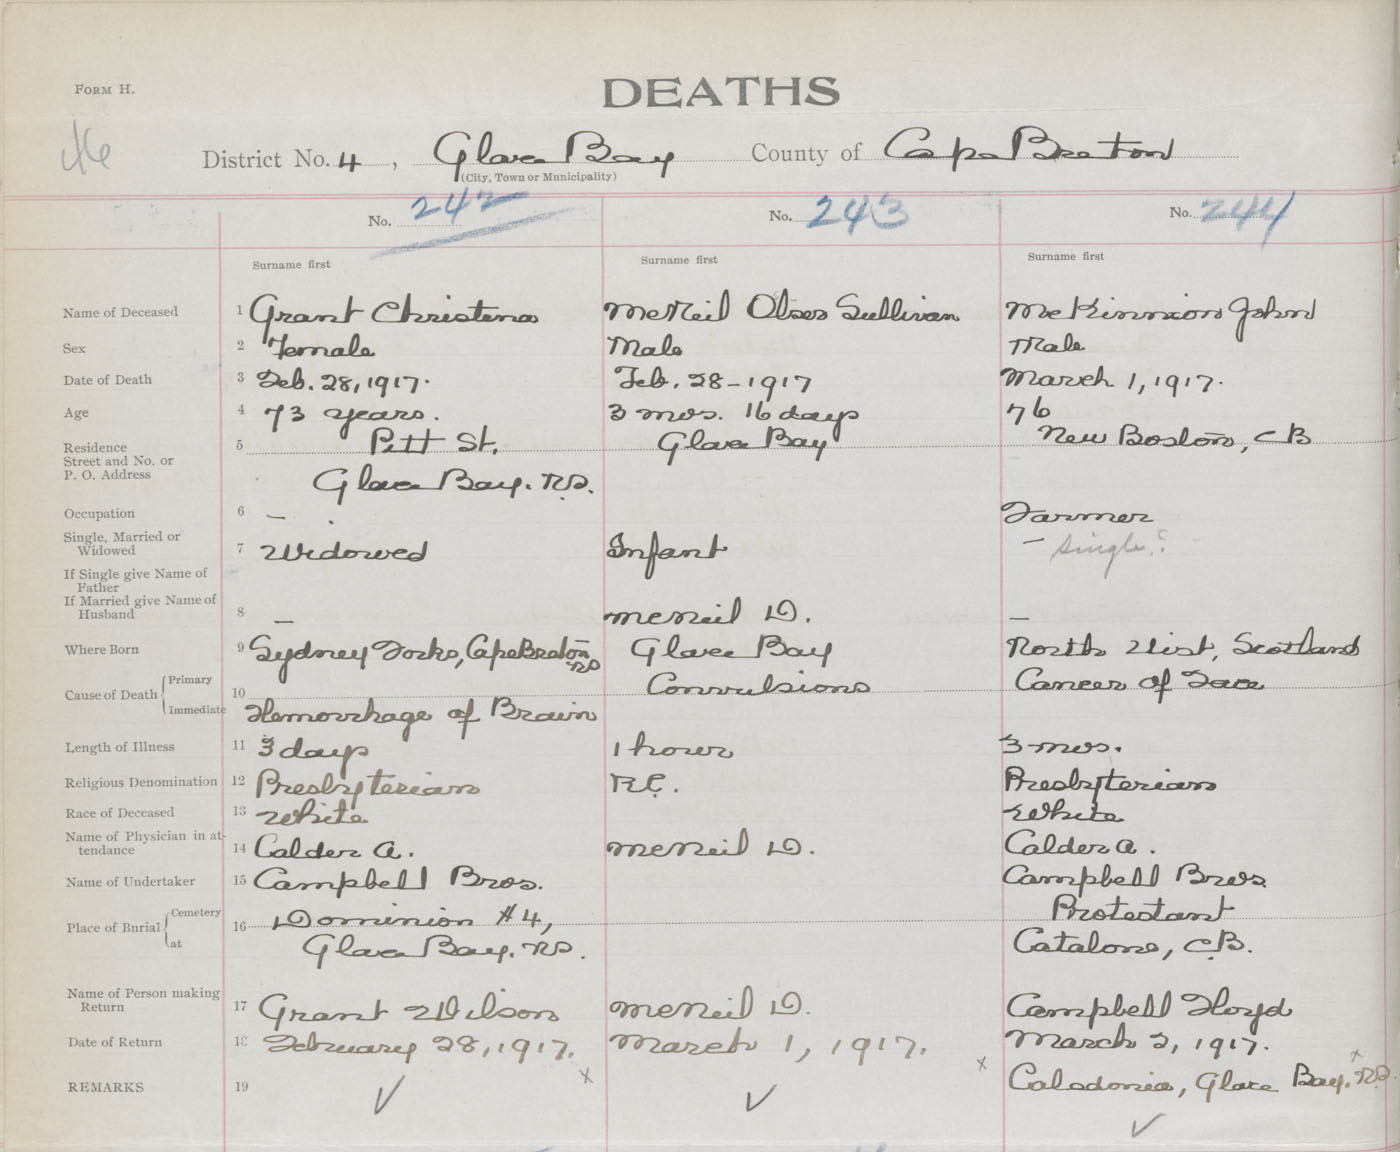 FORM H.
DEATHS
District No. 4, Glace Bay County of Cape Breton
(City, Town or Municipality)
No. 242 No. 243 No. 244
Surname first Surname first Surname first
Name of Deceased 1 Grant Christena McNeil Sullivan McKinnon John
Sex 2 Female Male Male
Date of Death 3 Feb. 28, 1917. Feb. 28-1917 March 1, 1917.
Age 4 73 years. 3 mos. 16 days 76
Residence 5 Pitt St. Glace Bay New Boston, CB
Street and No. or
P. O. Address Glace Bay. N.S.
Occupation 6 — Farmer
Single, Married or
Widowed 7 Widowed Infant — Single?
If Single give Name of
Father
If Married give Name of
Husband 8 — McNeil D. —
Where Born 9 Sydney Forks, Cape Breton, NS Glace Bay North Uist, Scotland
Cause of Death Primary 10 Convulsions Cancer of Face
Immediate Hemorrhage of Brain
Length of Illness 11 3 days 1 hour 3 mos.
Religious Denomination 12 Presbyterian R.C. Presbyterian
Race of Deceased 13 White White
Name of Physician in at-
tendance 14 Calder A. McNeil D. Calder A.
Name of Undertaker 15 Campbell Bros. Campbell Bros.
Place of Burial Cemetery 16 Dominion #4, Protestant
at Glace Bay. N.S. Catalone, C.B.
Name of Person making
Return 17 Grant Wilson McNeil D. Campbell Floyd
Date of Return 18 February 28, 1917. March 1, 1917. March 2, 1917.
REMARKS 19 Caledonia, Glace Bay. N.S.